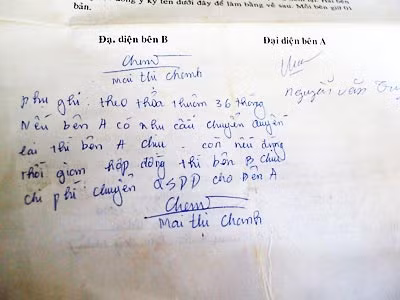 đồng ý ký tên dưới đây để làm bằng về sau. Mỗi bên giữ 01
bản.
Đạ. diện bên B
Đại diện bên A
Mai thi Chanh
nguyễn văn
phụ ghi: theo thỏa thuận 36 tháng
Nếu bên A có nhu cầu chuyển quyền
lại thì bên A chịu. còn nếu đúng
thời gian hợp đồng thì bên B chịu
chi phí chuyển QSDĐ cho bên A
Mai thi Chanh